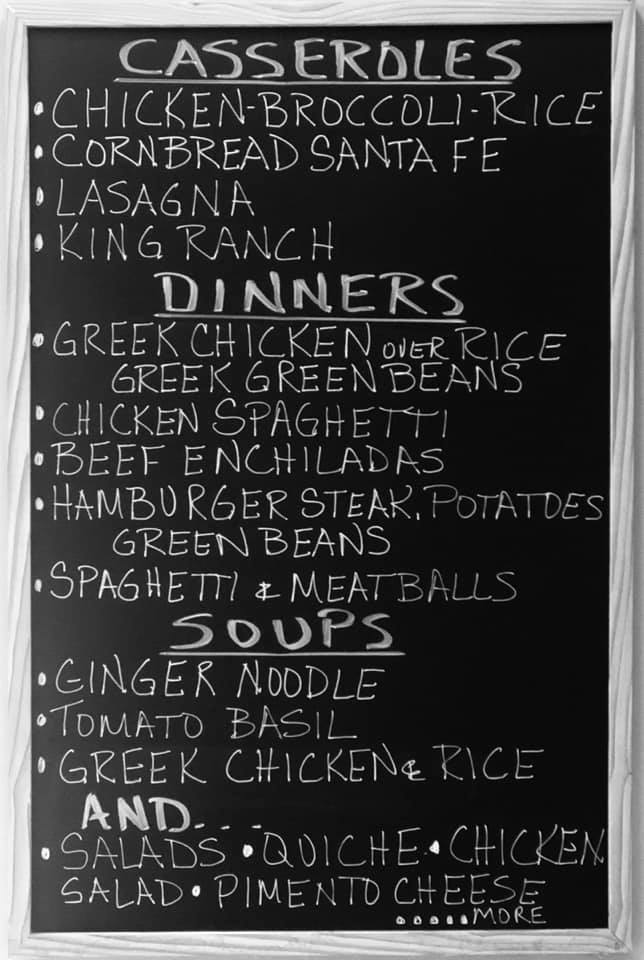 CASSEROLES
• CHICKEN-BROCCOLI-RICE
• CORNBREAD SANTA FE
• LASAGNA
• KING RANCH
DINNERS
• GREEK CHICKEN OVER RICE
GREEK GREEN BEANS
• CHICKEN SPAGHETTI
• BEEF ENCHILADAS
• HAMBURGER STEAK, POTATOES
GREEN BEANS
• SPAGHETTI & MEATBALLS
SOUPS
• GINGER NOODLE
• TOMATO BASIL
• GREEK CHICKEN & RICE
AND....
• SALADS • QUICHE • CHICKEN
SALAD • PIMENTO CHEESE
.....MORE